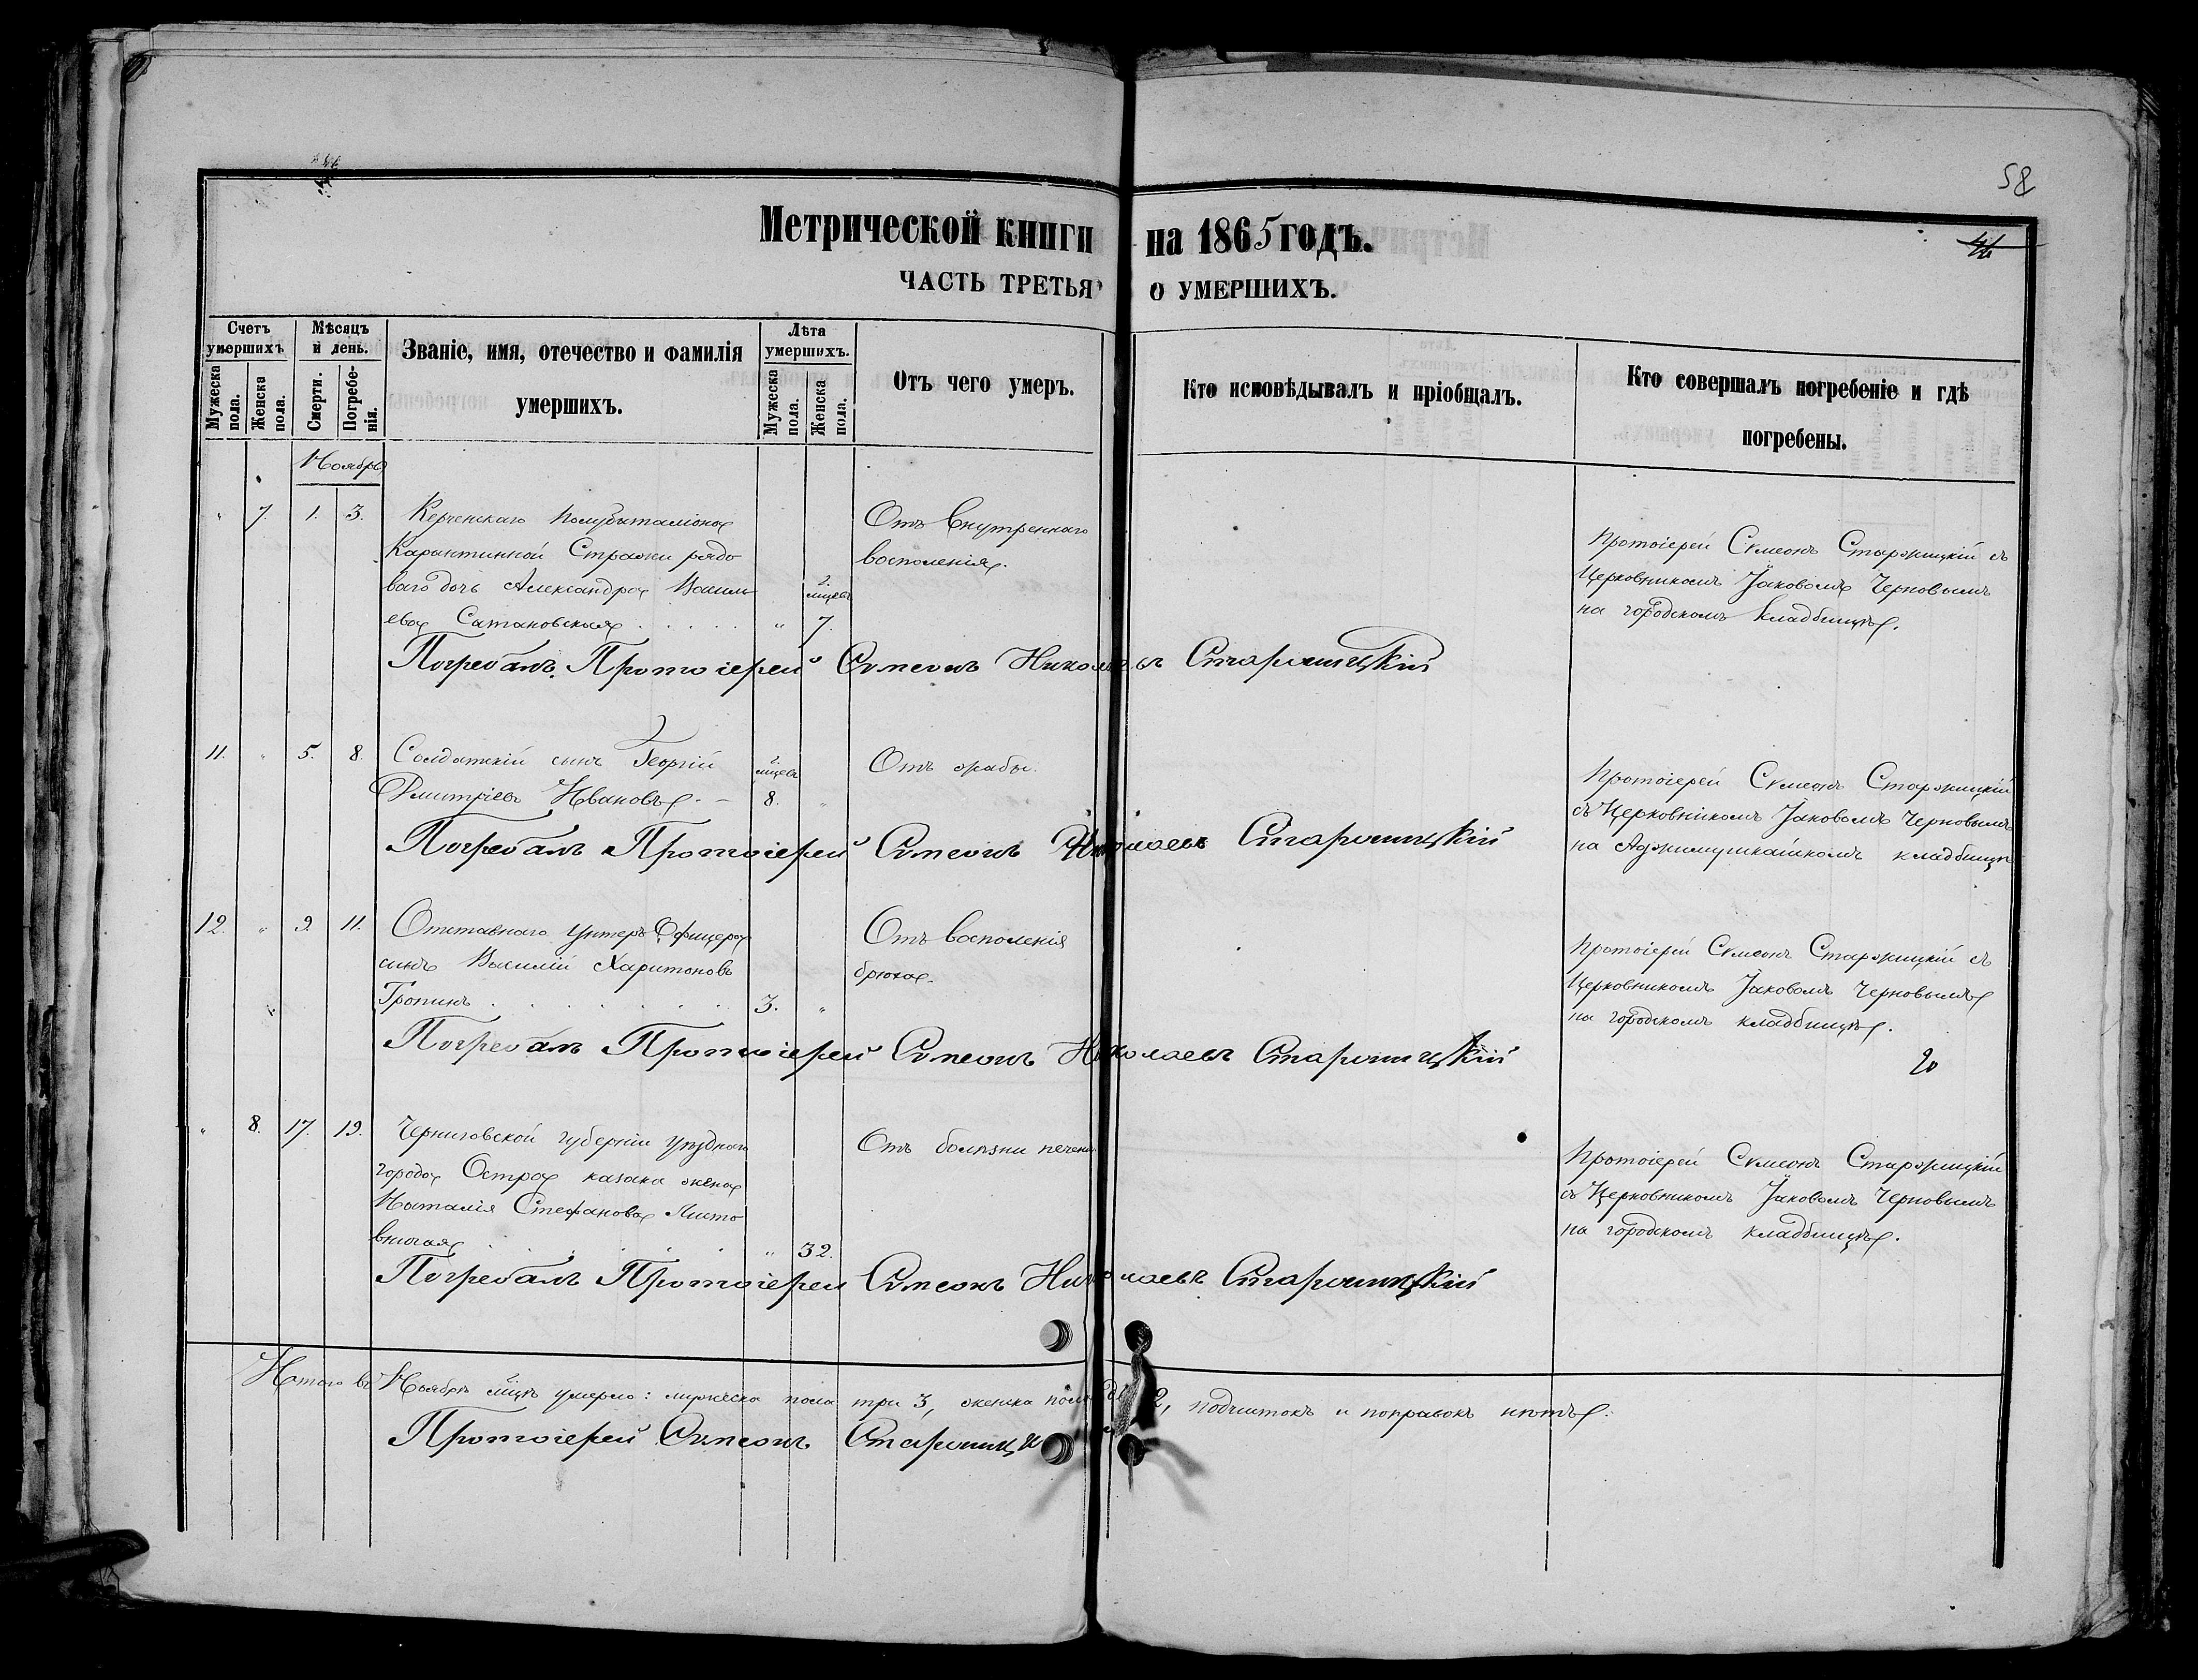 58
46
Метрической книги на 1865 годъ.
ЧАСТЬ ТРЕТЬЯ О УМЕРШИХЪ.
Счетъ умершихъ
Мужеска пола.
Женска пола.
Мѣсяцъ и день.
Смерти.
Погребенія.
Званіе, имя, отечество и фамилія умершихъ.
Лѣта умершихъ.
Мужеска пола.
Женска пола.
Отъ чего умеръ.
Кто исповѣдывалъ и пріобщалъ.
Кто совершалъ погребеніе и гдѣ погребены.
Ноябрь
" 7. 1. 3. Керченскаго полубаталіона
Карантинной Стражи рядо
ваго дочь Александра Василь
ева Сатановская . . . . . " мцевъ 7.
Отъ внутренняго
воспаленія.
Протоіерей Сѵмеонъ Старжицкій съ
Церковникомъ Іаковомъ Черновымъ
на городскомъ кладбищѣ.
Погребалъ Протоіерей Сѵмеонъ Николаевъ Старжицкій
11. " 5. 8. Солдатскій сынъ Георгій
Дмитріевъ Ивановъ. – мцевъ 8. "
Отъ жабы.
Протоіерей Сѵмеонъ Старжицкій
съ Церковникомъ Іаковомъ Черновымъ
на Аджимушкайскомъ кладбищѣ
Погребалъ Протоіерей Сѵмеонъ Николаевъ Старжицкій
12. " 9. 11. Отставнаго Унтеръ-Офицера
сынъ Василій Харитоновъ
Тропинъ . . . . . . . 3. "
Отъ воспаленія
брюха.
Протоіерей Сѵмеонъ Старжицкій съ
Церковникомъ Іаковомъ Черновымъ
на городскомъ кладбищѣ.
Погребалъ Протоіерей Сѵмеонъ Николаевъ Старжицкій
" 8. 17. 19. Черниговской губерніи уѣзднаго
города Остра казака жена
Наталія Стефанова Листо
вничая . . . . . . " 32.
Отъ болѣзни печени
Протоіерей Сѵмеонъ Старжицкій
съ Церковникомъ Іаковомъ Черновымъ
на городскомъ кладбищѣ.
Погребалъ Протоіерей Сѵмеонъ Николаевъ Старжицкій
Итого въ Ноябрѣ мцѣ умерло: мужеска пола три 3, женска пола 2, подчистокъ и поправокъ нѣтъ.
Протоіерей Сѵмеонъ